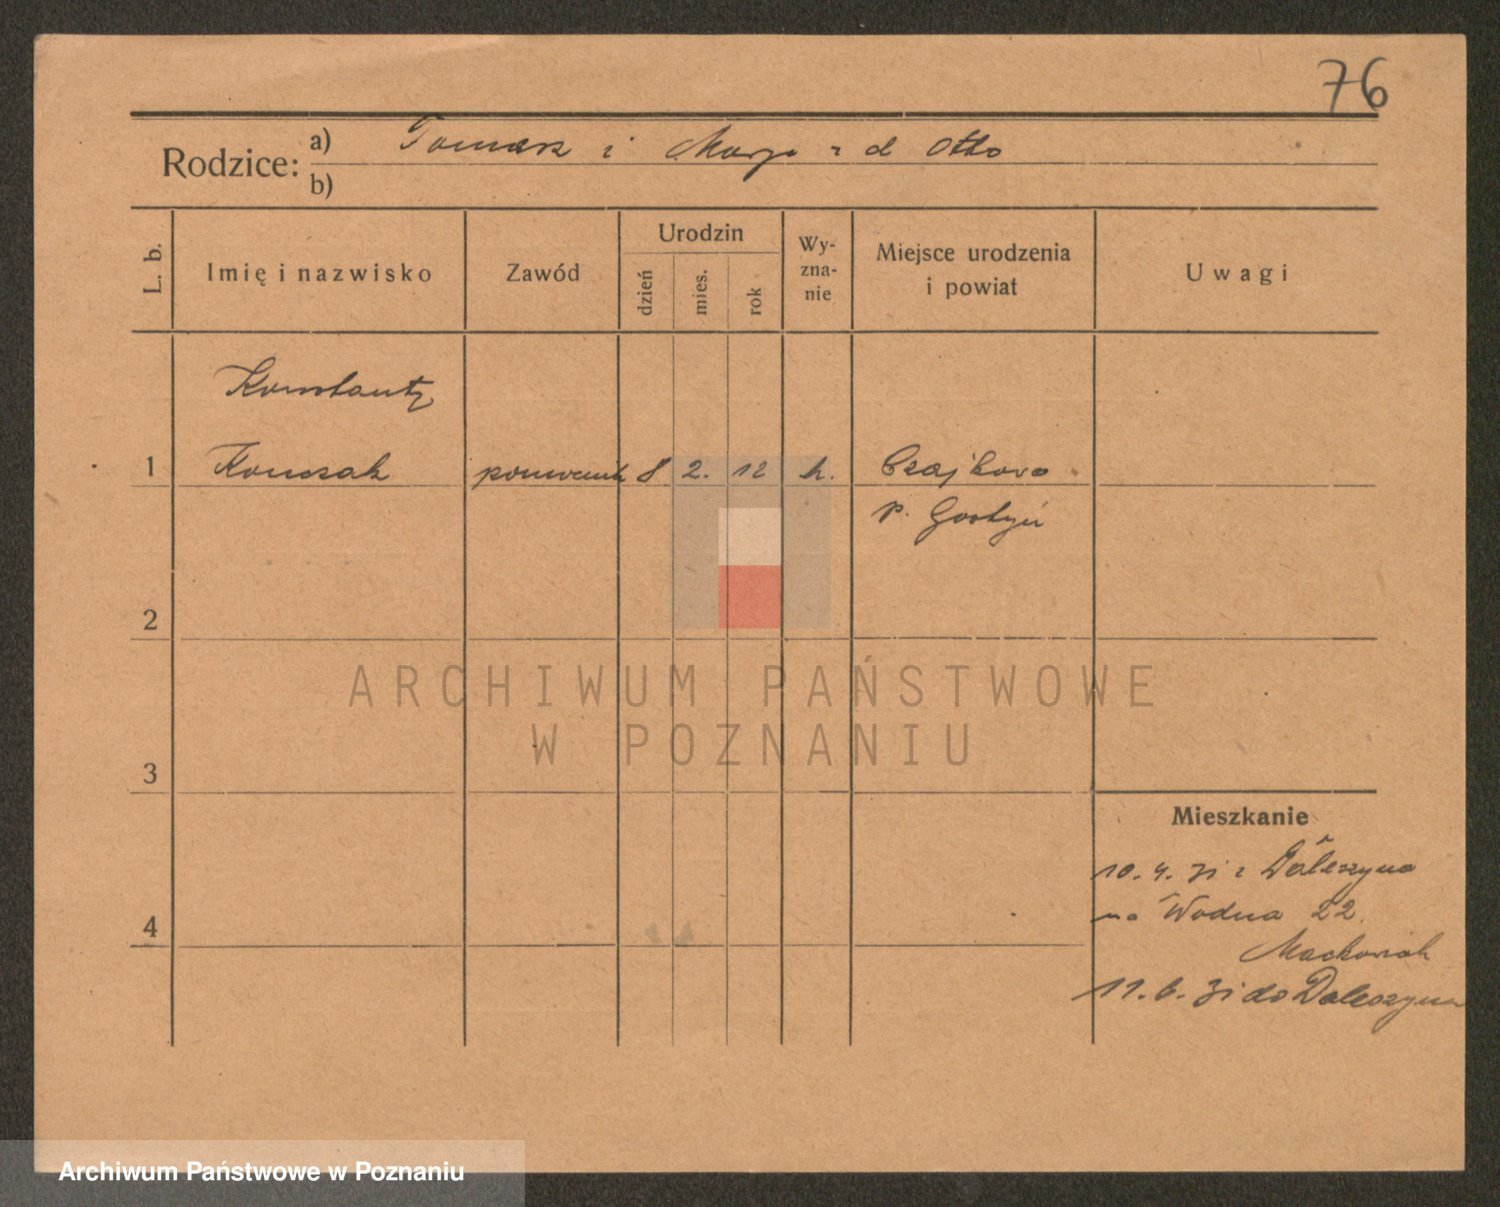 76
Rodzice: a) Tomasz i Marja z d Otto
b)
L. b. Imię i nazwisko Zawód Urodzin dzień mies. rok Wy-zna-nie Miejsce urodzenia i powiat Uwagi
Konstanty
1 Konczak 8 2. 12 k. Czajkowo
p. Gostyń
2
ARCHIWUM PAŃSTWOWE
W POZNANIU
3
Mieszkanie
10. 4. 31 z Daleszyna
na Wodna 22.
4
Mackowiak
11. 6. 31 do Daleszyna
Archiwum Państwowe w Poznaniu